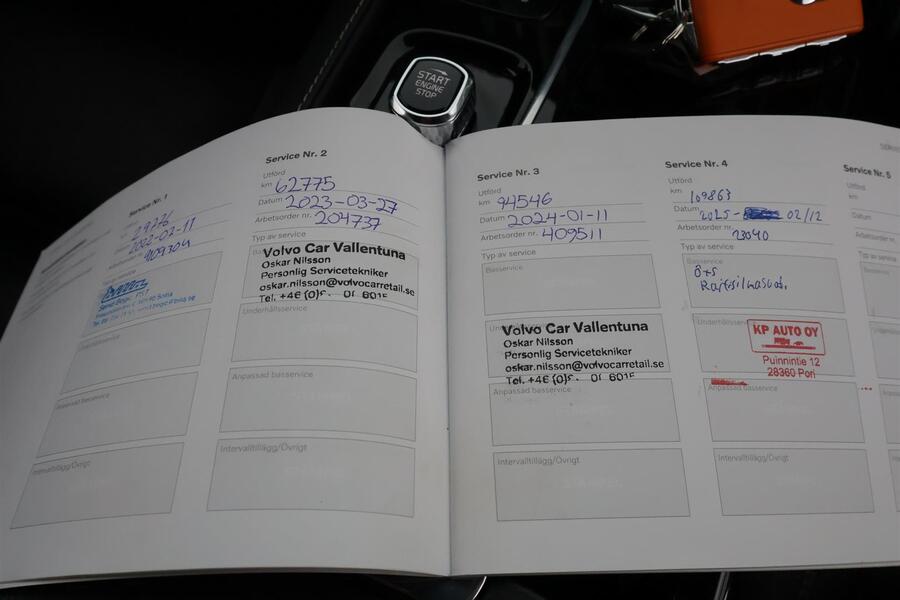 START
ENGINE
STOP
Service Nr. 1
2022-02-11
409304
Intervalltillägg/Övrigt
Service Nr. 2
Utförd
km 62775
Datum 2023-03-27
Arbetsorder nr. 204737
Typ av service
Volvo Car Vallentuna
Oskar Nilsson
Personlig Servicetekniker
oskar.nilsson@volvocarretail.se
Underhållsservice
Anpassad basservice
Intervalltillägg/Övrigt
Service Nr. 3
Utförd
km 94546
Datum 2024-01-11
Arbetsorder nr. 409511
Typ av service
Basservice
Volvo Car Vallentuna
Oskar Nilsson
Personlig Servicetekniker
oskar.nilsson@volvocarretail.se
Anpassad basservice
Intervalltillägg/Övrigt
Service Nr. 4
Utförd
km 109863
Datum 2025- 02/12
Arbetsorder nr. 23040
Typ av service
Basservice
Underhållsservice
KP AUTO OY
Puinnintie 12
28360 Pori
Anpassad basservice
Intervalltillägg/Övrigt
Service Nr. 5
Utförd
km
Datum
Arbetsorder nr.
Typ av service